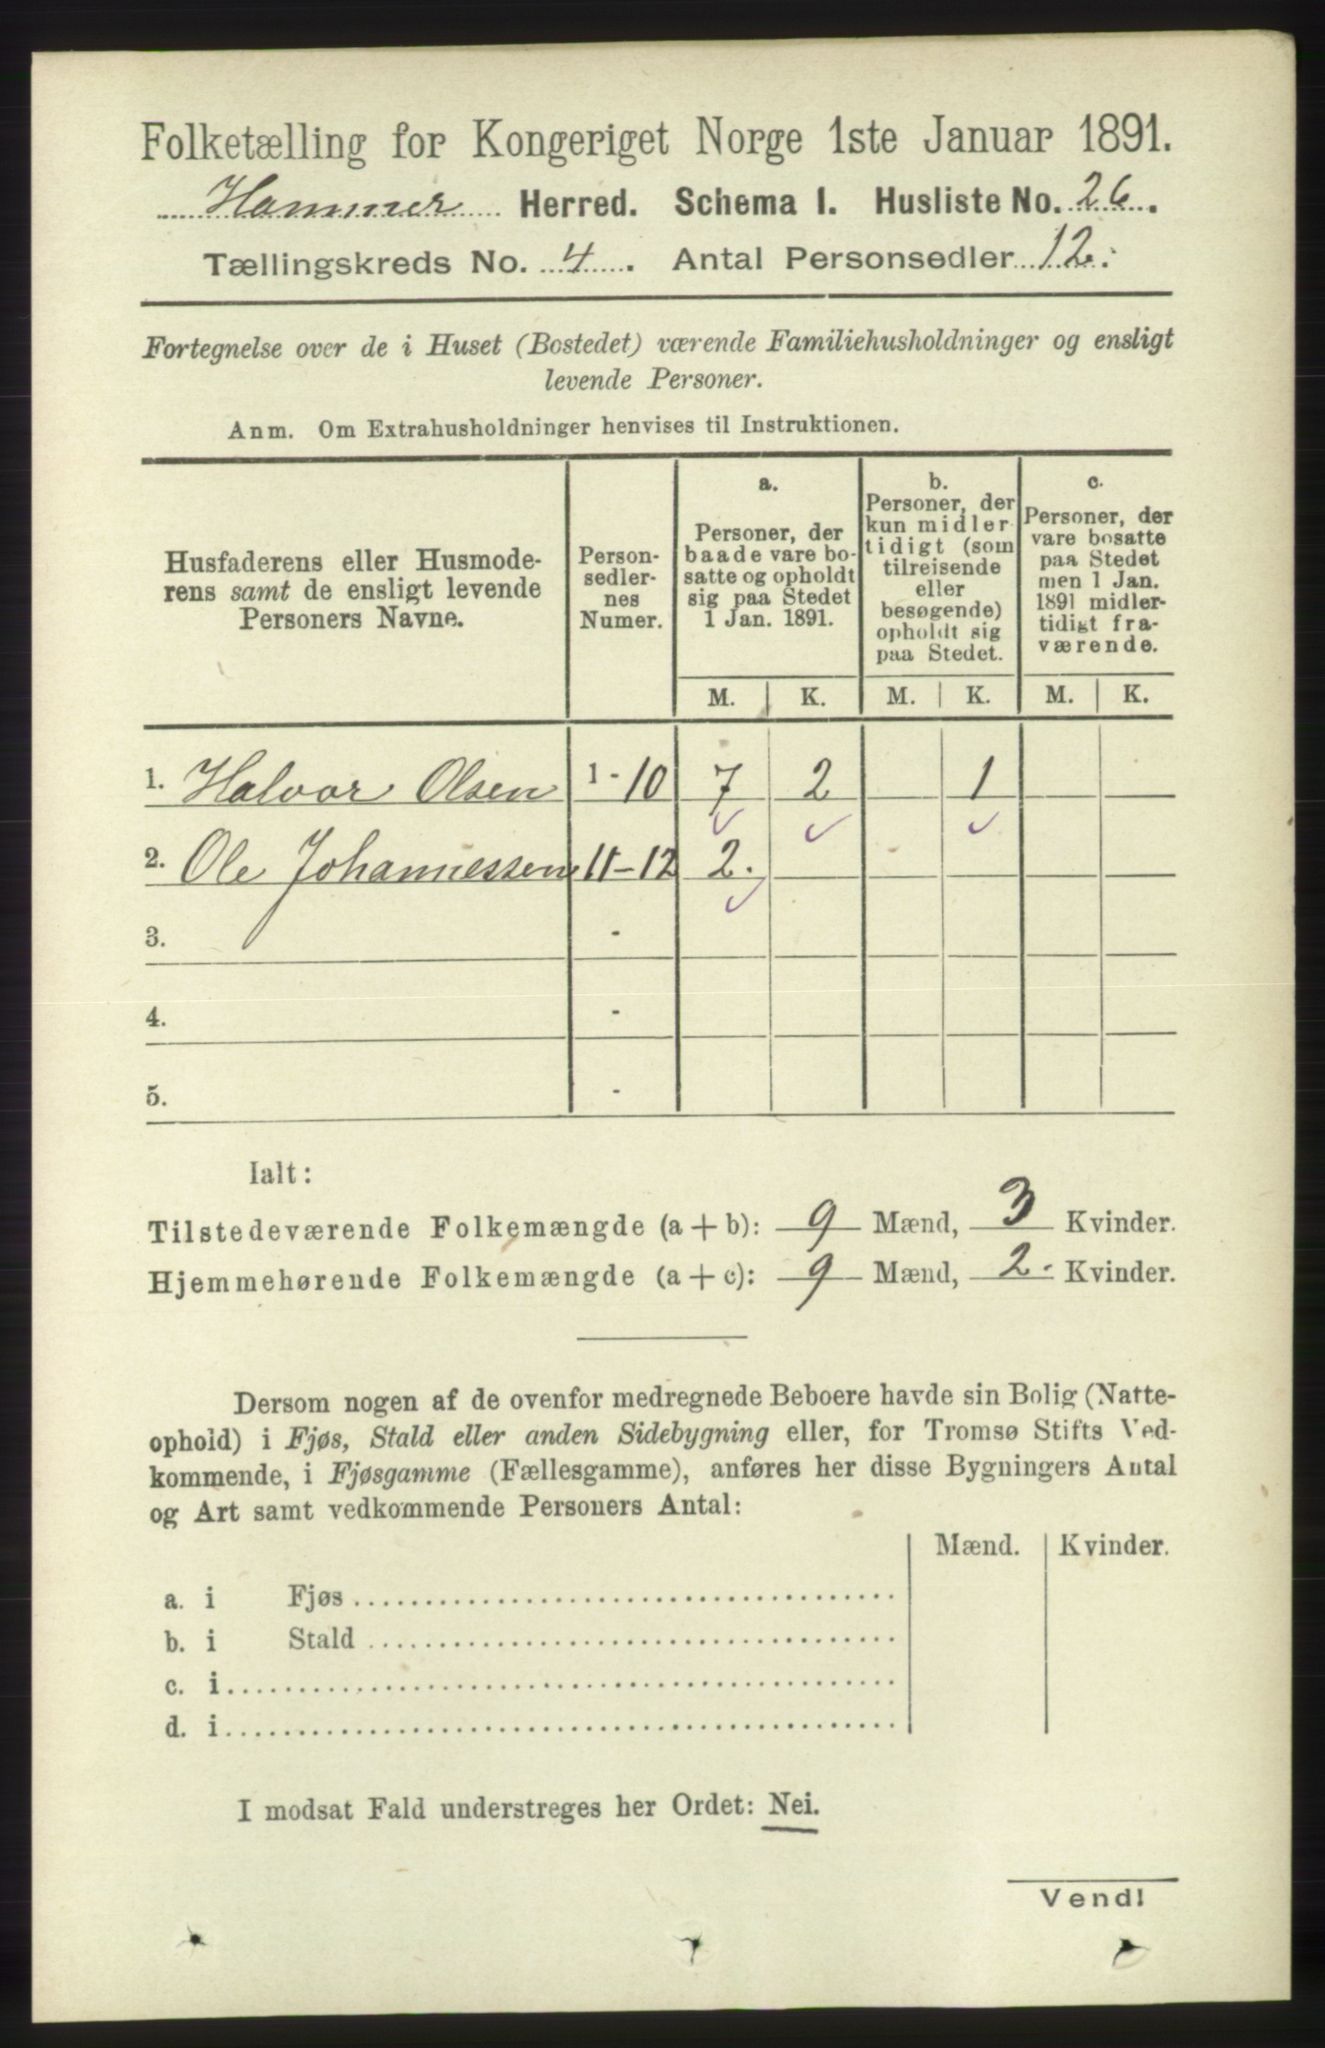 Folketælling for Kongeriget Norge 1ste Januar 1891.
Hammer Herred. Schema I. Husliste No. 26.
Tællingskreds No. 4. Antal Personsedler 12.
Fortegnelse over de i Huset (Bostedet) værende Familiehusholdninger og ensligt
levende Personer.
Anm. Om Extrahusholdninger henvises til Instruktionen.
Husfaderens eller Husmode-
rens samt de ensligt levende
Personers Navne.
Person-
sedler-
nes
Numer.
a.
Personer, der
baade vare bo-
satte og opholdt
sig paa Stedet
1 Jan. 1891.
b.
Personer, der
kun midler
tidigt (som
tilreisende
eller
besøgende)
opholdt sig
paa Stedet.
c.
Personer, der
vare bosatte
paa Stedet
men 1 Jan.
1891 midler-
tidigt fra-
værende.
M. K. M. K. M. K.
1. Halvor Olsen 1-10 7 2 1
2. Ole Johannessen 11-12 2.
3. -
4. -
5. -
Ialt:
Tilstedeværende Folkemængde (a+b): 9 Mænd, 3 Kvinder.
Hjemmehørende Folkemængde (a+c): 9 Mænd, 2. Kvinder.
Dersom nogen af de ovenfor medregnede Beboere havde sin Bolig (Natte-
ophold) i Fjøs, Stald eller anden Sidebygning eller, for Tromsø Stifts Ved-
kommende, i Fjøsgamme (Fællesgamme), anføres her disse Bygningers Antal
og Art samt vedkommende Personers Antal:
Mænd. Kvinder.
a. i Fjøs
b. i Stald
c. i
d. i
I modsat Fald understreges her Ordet: Nei.
Vend!